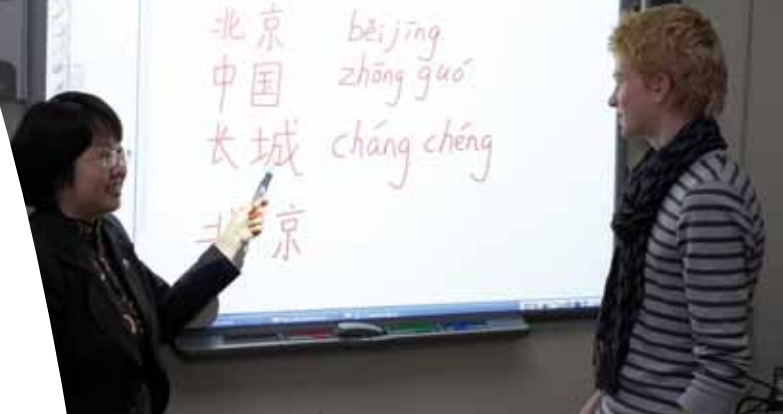 北京 běijīng
中国 zhōng guó
长城 cháng chéng
北京